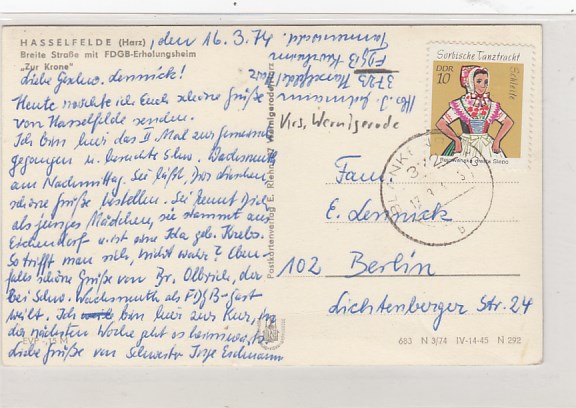 HASSELFELDE (Harz)
Breite Straße mit FDGB-Erholungsheim
„Zur Krone"
, den 16. 3. 74
Liebe
Heute möchte ich Euch schöne Grüße
von Hasselfelde senden.
Ich bin hier das II. Mal zur
gegangen u. besuchte Schw. Wachsmuth
am Nachmittag. Sie läßt, Dir
schöne Grüße bestellen. Sie kennt Dich
als junges Mädchen, sie stammt aus
u. ist eine Ida geb. Krebs.
So trifft man sich, nicht wahr? Eben-
falls schöne Grüße von Br. Olbrich, der
bei Schw. Wachsmuth als FDGB-Gast
weilt. Ich bin hier zur Kur, in
der nächsten Woche geht es heimwärts,
Liebe Grüße von Schwester Inge
EVP -,15 M
FDGB
3723 Hasselfelde
Krs. Wernigerode
Postkartenverlag E. Riehn, 37 Wernigerode/Harz
Sorbische Tanztracht
Schleife
DDR
10
BLANKE
b
Fam.
E.
102 Berlin
Lichtenberger Str. 24
683 N 3/74 IV-14-45 N 292